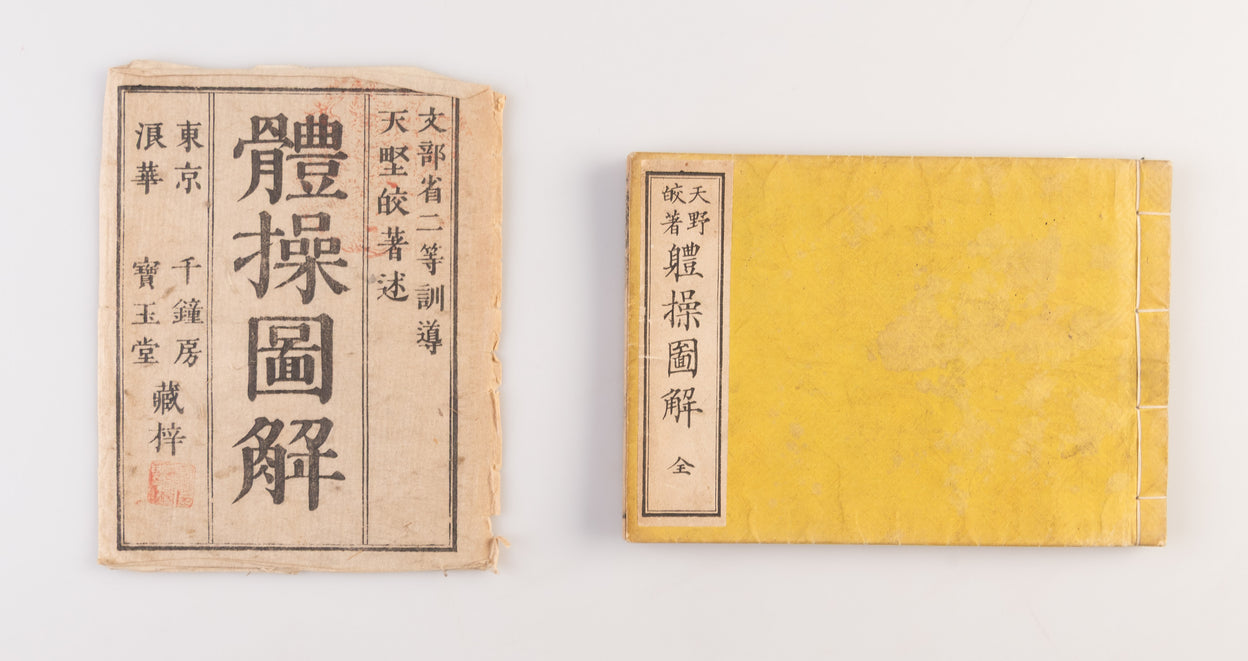 文部省二等訓導
天㙒皎著述
體操圖解
東京 千鐘房
浪華 寶玉堂
藏梓
天野
皎著
軆操圖解 全